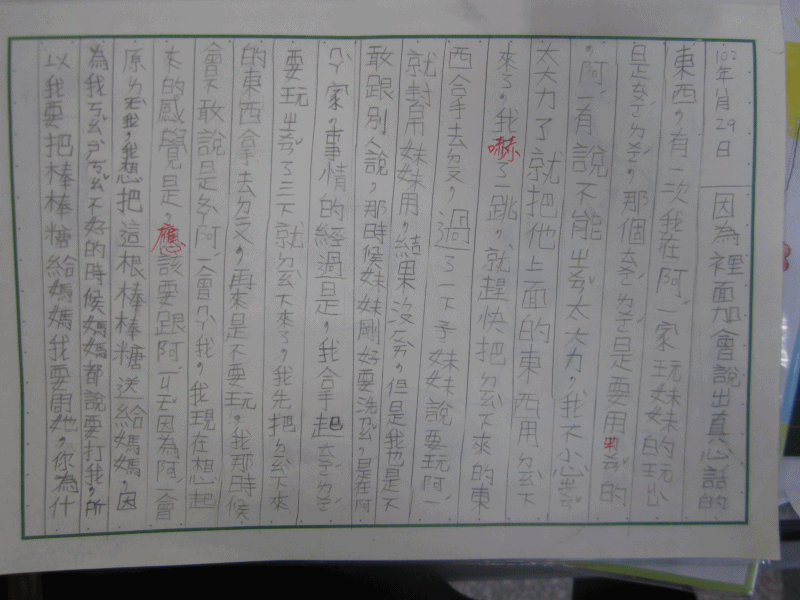 102年1月29日
因為裡面會說出真心話的
東西,有一次我在阿ㄧˊ家玩妹妹的玩
是ㄊㄤˊㄌㄤˊ,那個ㄊㄤˊㄌㄤˊ是要用ㄓㄨㄢˇ的
,阿ㄧˊ有說不能ㄓㄨㄢˇ太大力,我不小心ㄓㄨㄢˇ
太大力了就把他上面的東西用ㄉㄠˋ下
來了,我嚇了一跳,就趕快把ㄉㄠˋ下來的東
西拿去ㄈㄤˋ,過了一下子妹妹說要玩阿ㄧˊ
就幫妹妹用,結果沒ㄉㄨㄥˋ,但是我也是不
敢跟別人說,那時候妹妹剛好要洗ㄗㄠˇ,是在阿
ㄧˊ家,事情的經過是,我拿起ㄊㄤˊㄌㄤˊ
要玩ㄓㄨㄢˇ了三下就ㄉㄠˋ下來了,我先把ㄉㄠˋ下來
的東西拿去ㄈㄤˋ,再來是不要玩,我那時候
會不敢說是ㄆㄚˋ阿ㄧˊ會ㄇㄚˋ我,我現在想起
來的感覺是應該要跟阿ㄧˊㄐㄧㄤˇ因為阿ㄧˊ會
原ㄌㄧㄤˋ我,我想把這根棒棒糖送給媽媽,因
為我ㄅㄧㄠˇㄒㄧㄢˋ不好的時候媽媽都說要打我,所
以我要把棒棒糖給媽媽我要問她,你為什